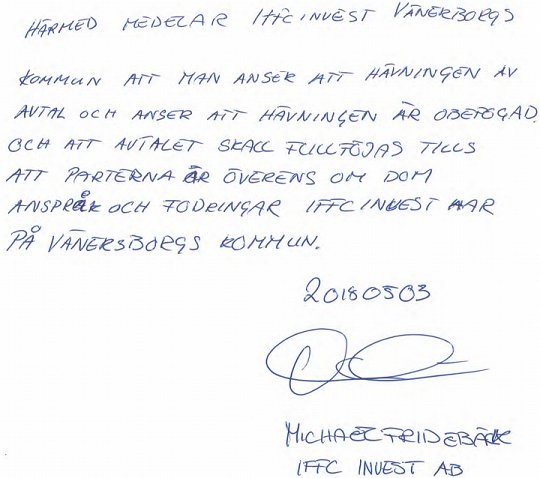 HÄRMED MEDELAR IFFC INVEST VÄNERBORGS
KOMMUN ATT MAN ANSER ATT HÄVNINGEN AV
AVTAL OCH ANSER ATT HÄVNINGEN ÄR OBEFOGAD.
OCH ATT AVTALET SKALL FULLFÖJAS TILLS
ATT PARTERNA ÄR ÖVERENS OM DOM
ANSPRÅK OCH FODRINGAR IFFC INVEST HAR
PÅ VÄNERSBORGS KOMMUN.
20180503
MICHAEL FRIDEBÄCK
IFFC INVEST AB